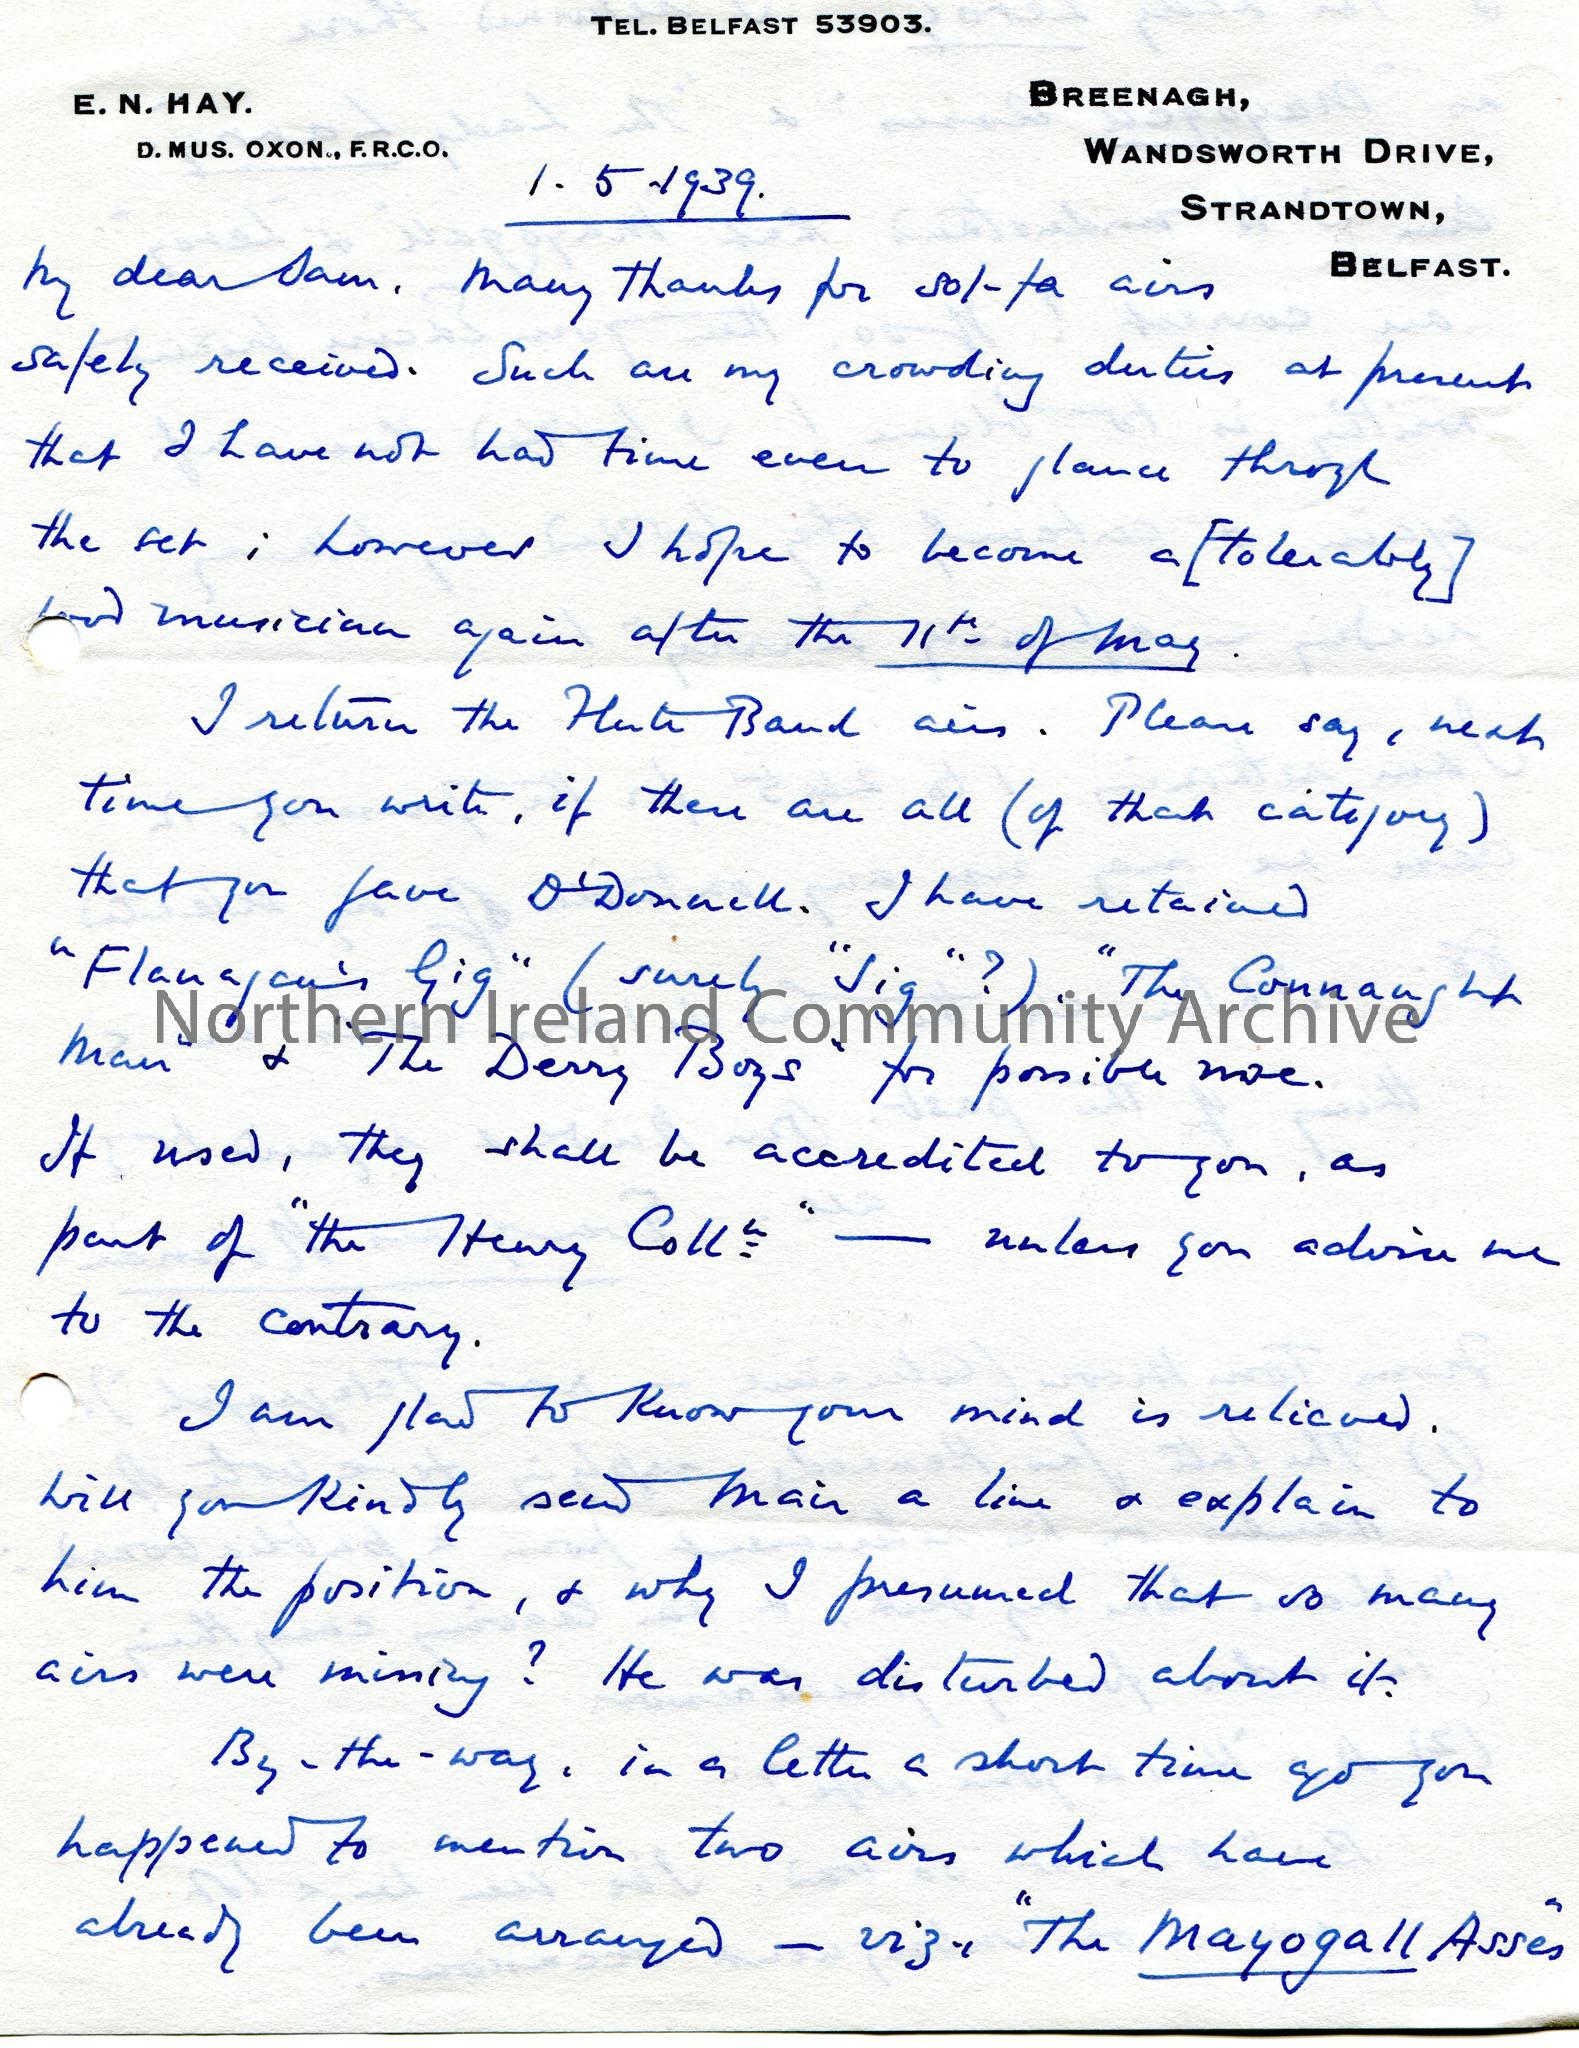 TEL. BELFAST 53903.
E. N. HAY.
D. MUS. OXON., F.R.C.O.
BREENAGH,
WANDSWORTH DRIVE,
STRANDTOWN,
BELFAST.
1. 5. 1939.
My dear Sam. Many thanks for sol-fa airs
safely received. Such are my crowding duties at present
that I have not had time even to glance throgh
the set ; however I hope to become a [tolerably]
good musician again after the 11th of May.
I return the Flute Band airs. Please say, next
time you write, if these are all (of that category)
that you gave O'Donnell. I have retained
"Flanagan's Gig" (surely "Jig"?). "The Connaught
Man" & "The Derry Boys" for possible use.
If used, they shall be accredited to you, as
part of "the Henry Colln" — unless you advise me
to the contrary.
I am glad to know your mind is relieved.
Will you kindly send Mair a line & explain to
him the position, & why I presumed that so many
airs were missing? He was disturbed about it.
By-the-way, in a letter a short time ago you
happened to mention two airs which have
already been arranged — viz., "The Mayogall Asses"
Northern Ireland Community Archive